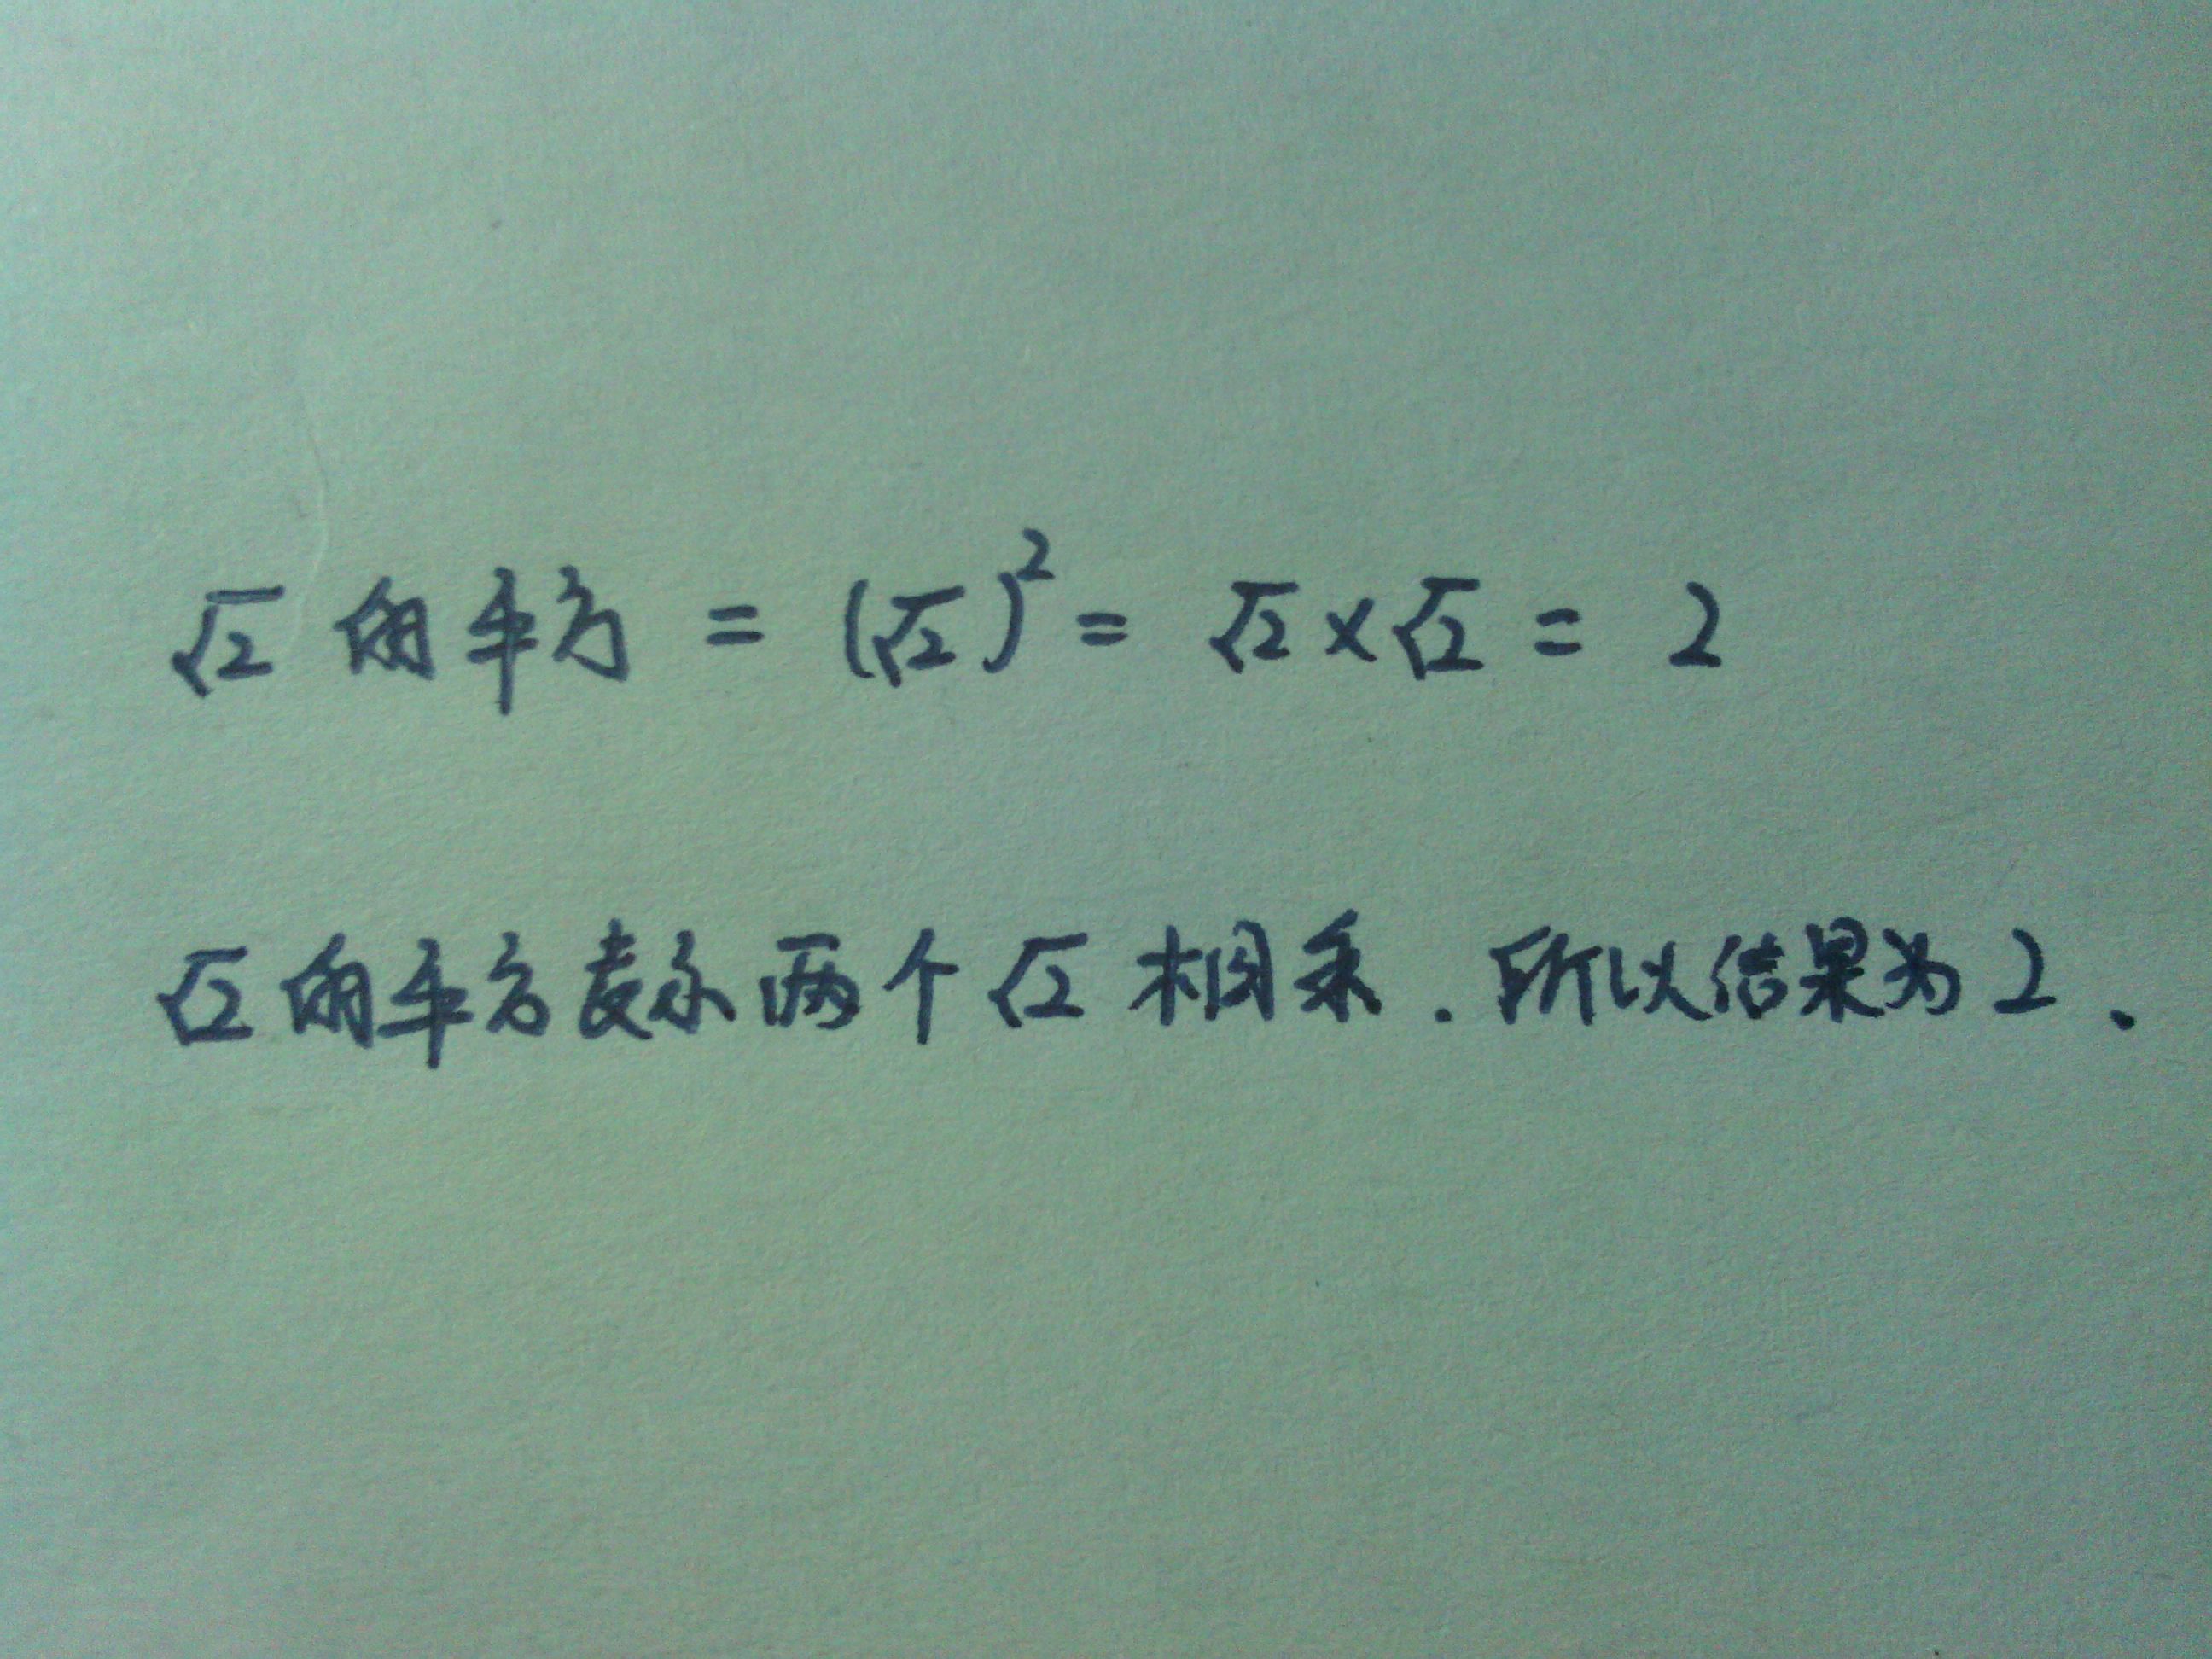 √2 的平方 = (√2)² = √2 × √2 = 2
√2的平方表示两个√2相乘.所以结果为2、